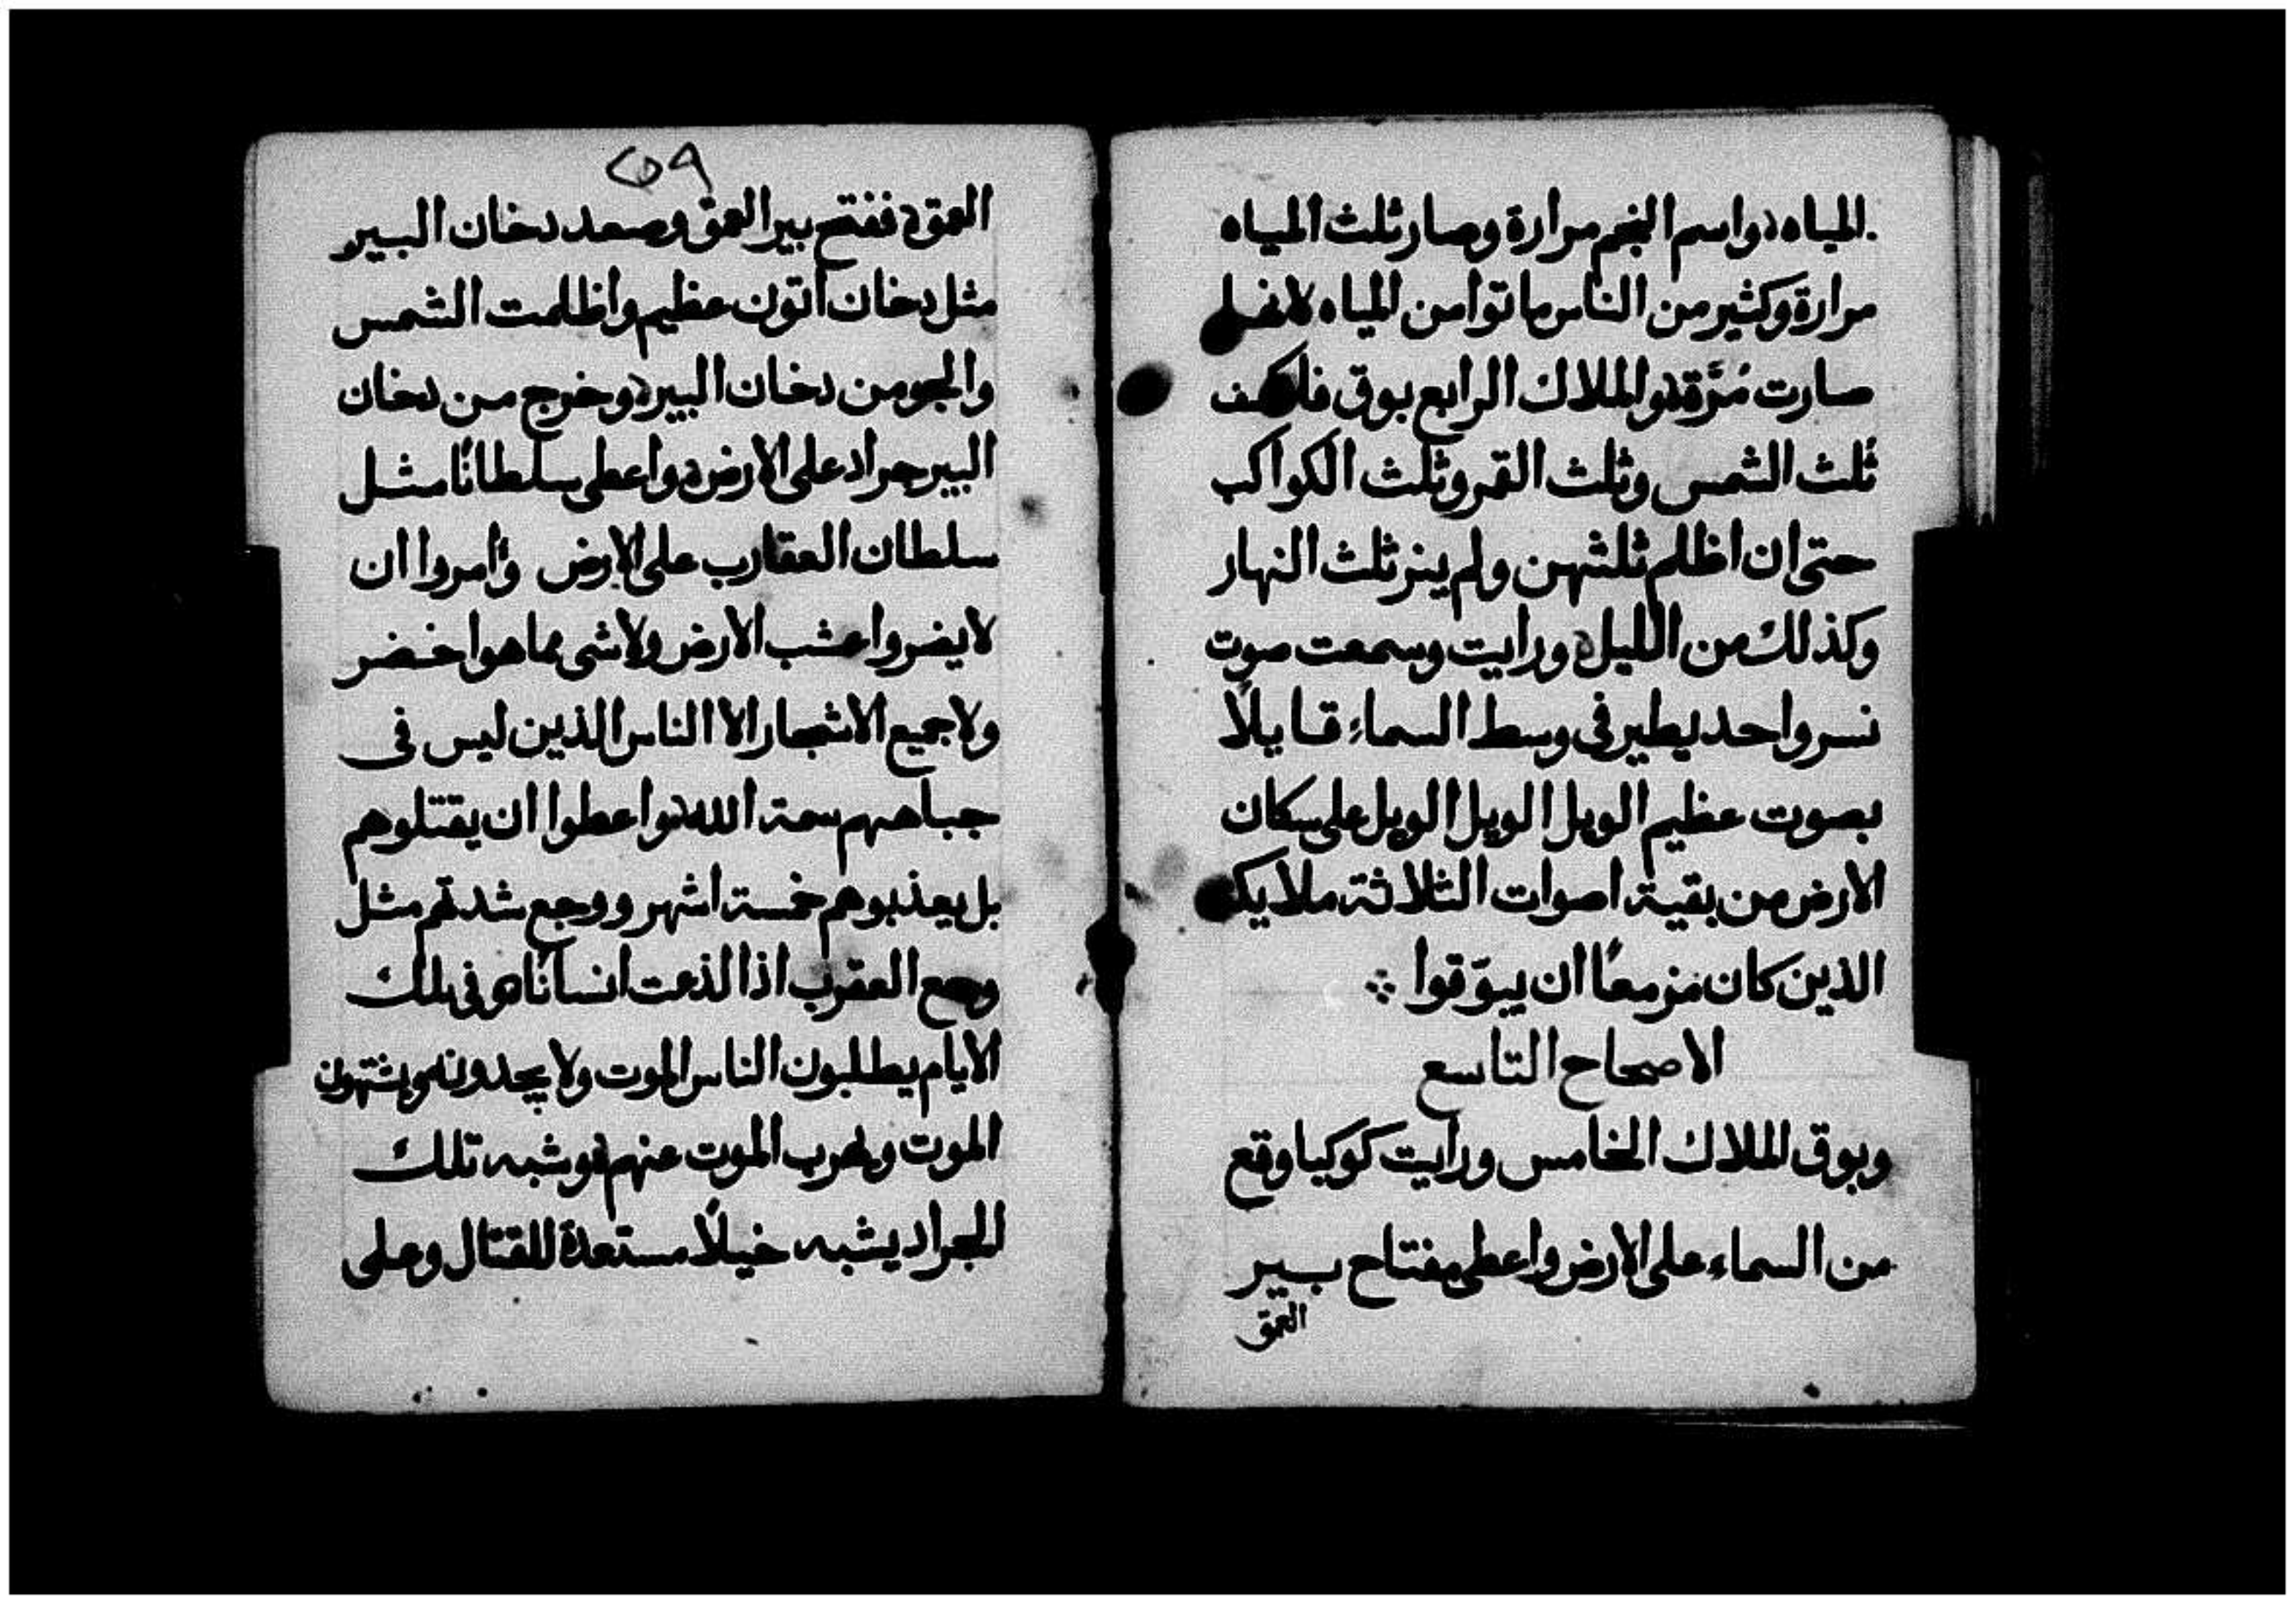 المياه واسم النجم مرارة وصار ثلث المياه
مرارة وكثير من الناس ماتوا من المياه لانها
صارت مُرَّة والملاك الرابع بوق فانكسف
ثلث الشمس وثلث القمر وثلث الكواكب
حتى ان اظلم ثلثهن ولم ينر ثلث النهار
وكذلك من الليل ورايت وسمعت صوت
نسر واحد يطير في وسط السماء قايلاً
بصوت عظيم الويل الويل الويل على سكان
الارض من بقية اصوات الثلاثة ملايكه
الذين كان مزمعًا ان يبوّقوا
الاصحاح التاسع
وبوق الملاك الخامس ورايت كوكبا وقع
من السماء على الارض واعطى مفتاح بير
العمق
٢٥٩
العمق ففتح بير العمق وصعد دخان البير
مثل دخان اتون عظيم واظلمت الشمس
والجو من دخان البير وخرج من دخان
البير جراد على الارض واعطى سلطانًا مثل
سلطان العقارب على الارض وأمروا ان
لا يضروا عشب الارض ولا شى مما هو اخضر
ولا جميع الاشجار الا الناس الذين ليس في
جباههم سمة الله واعطوا ان يقتلوهم
بل يعذبوهم خمسة اشهر ووجع شدتهم مثل
وجع العقرب اذا لذعت انسانًا وفي تلك
الايام يطلبون الناس الموت ولا يجدونه ويشتهون
الموت ويهرب الموت عنهم وشبه تلك
الجراد يشبه خيلاً مستعدة للقتال وعلى